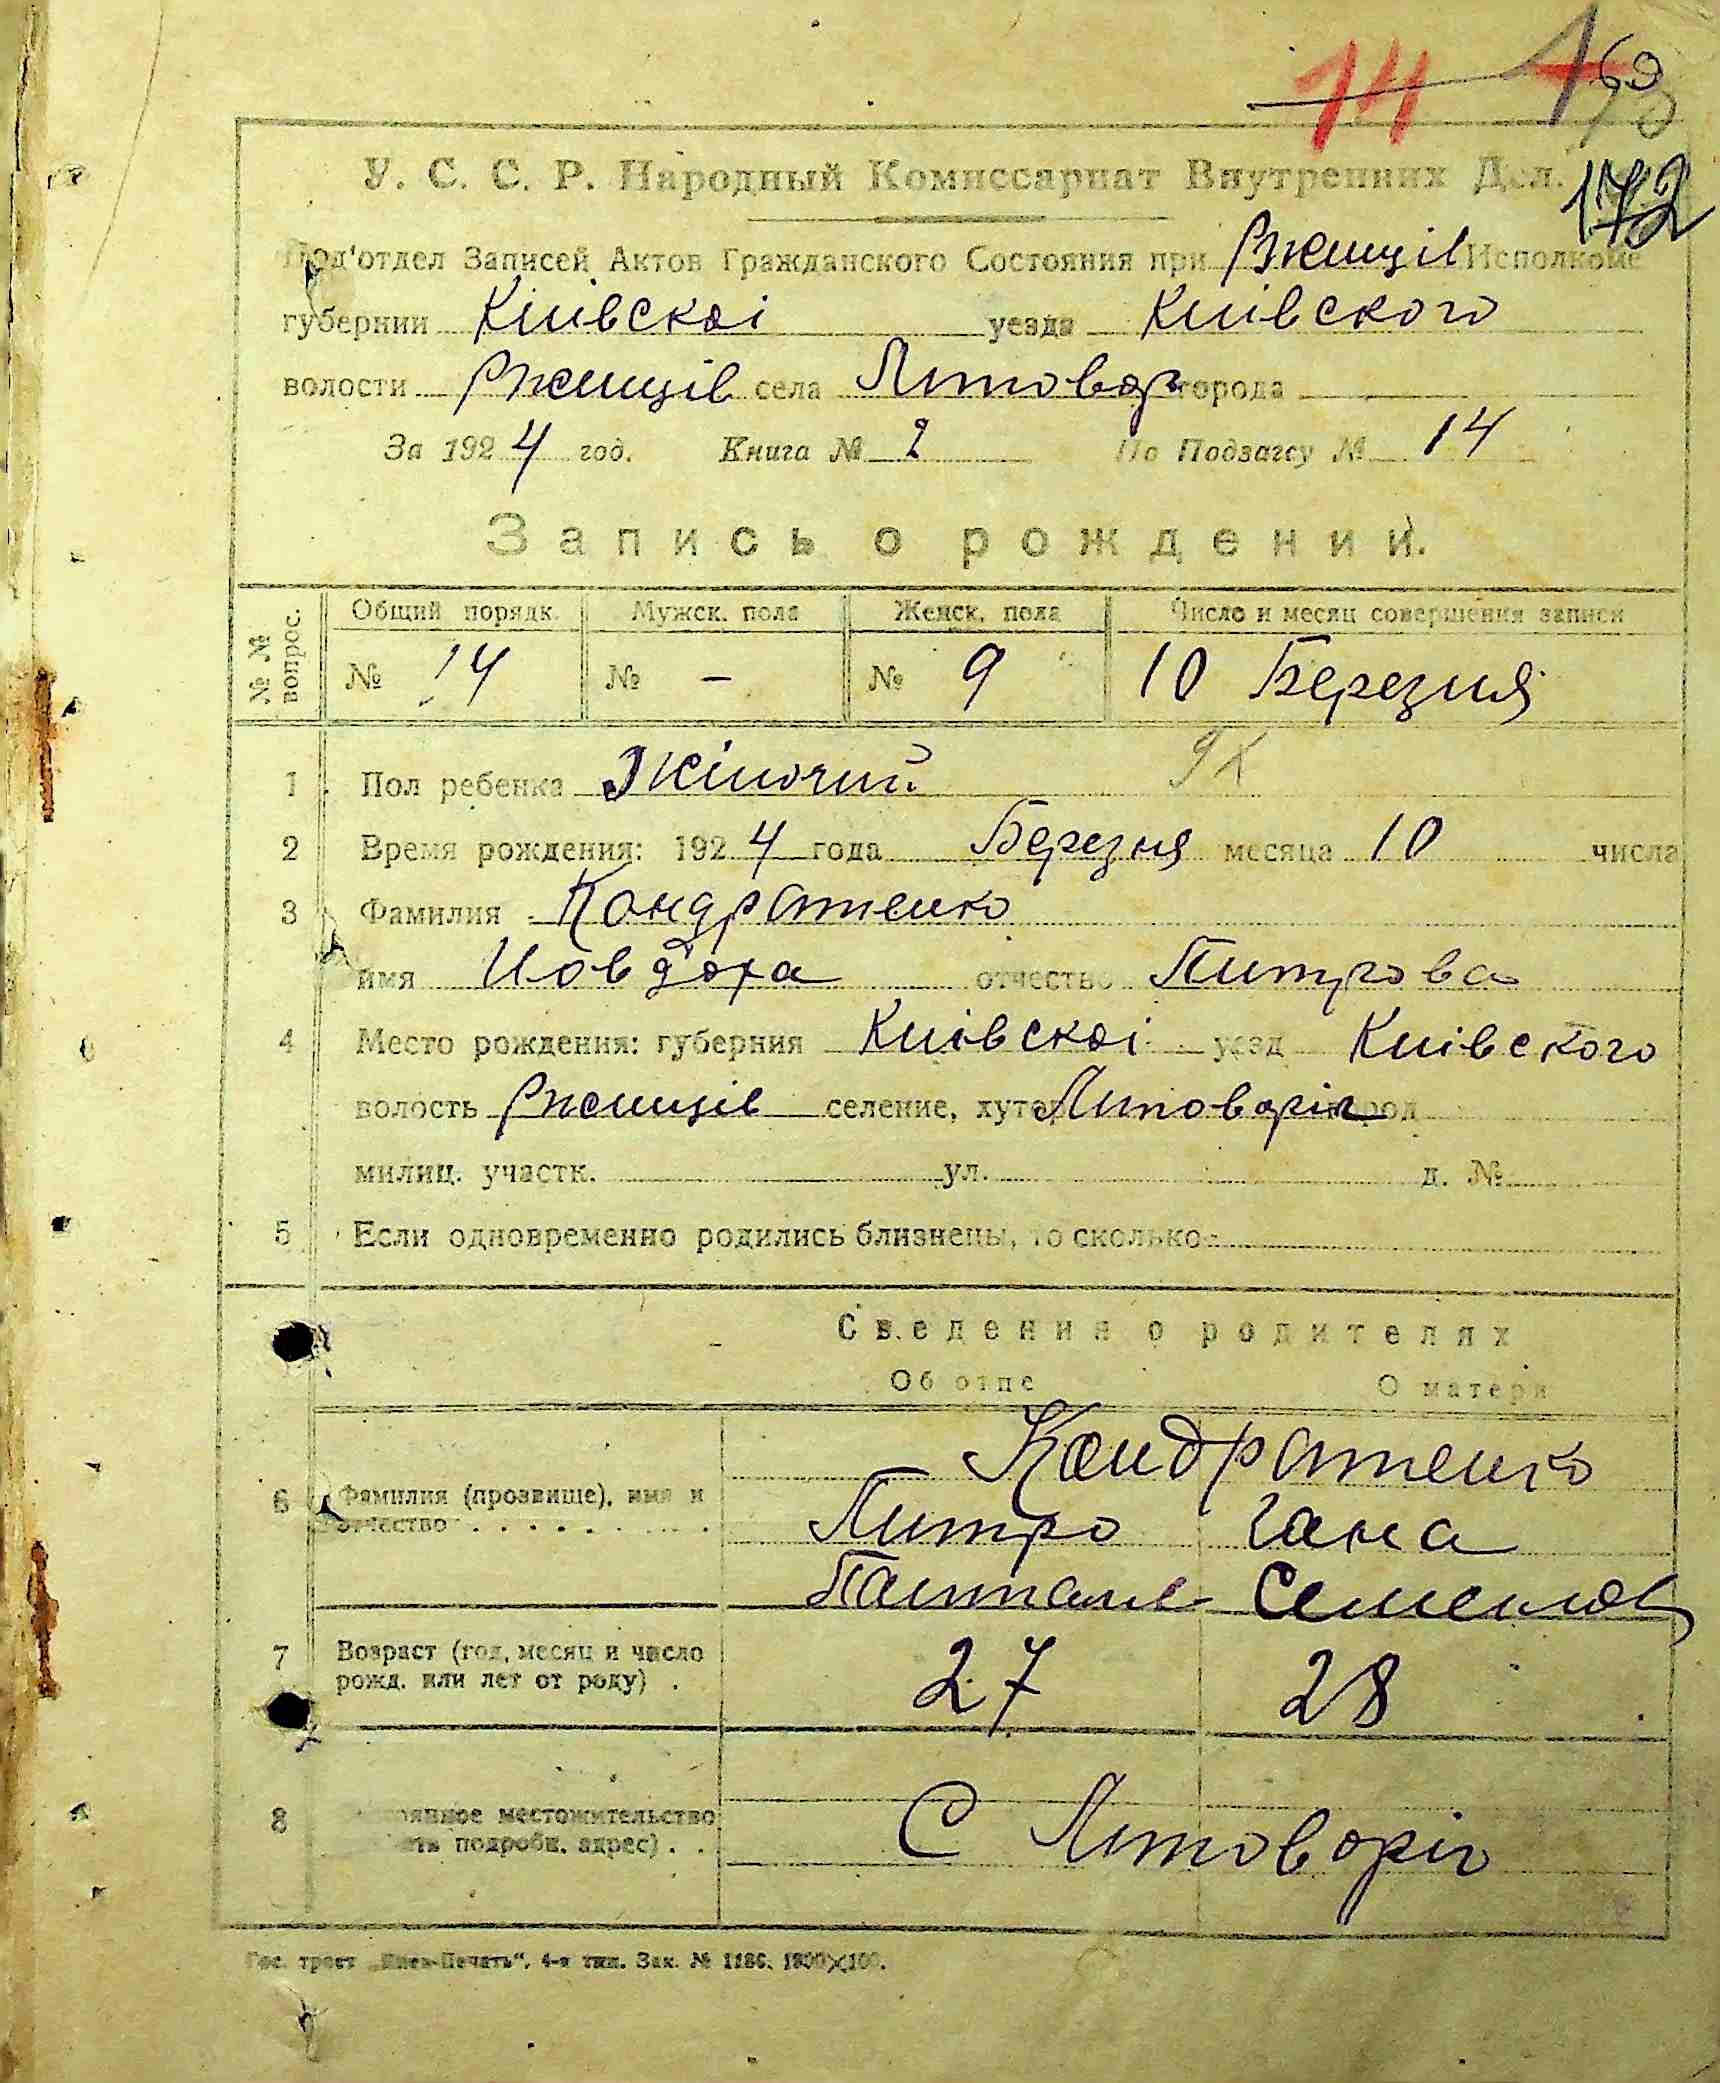 14
172
У. С. С. Р. Народный Комиссариат Внутренних Дел.
Под'отдел Записей Актов Гражданского Состояния при Ржищів Исполкоме
губернии Київскоі уезда Київского
волости Ржищів села города
За 1924 год. Книга № 2 По Подзагсу № 14
Запись о рождении.
№ № вопрос. Общий порядк. Мужск. пола Женск. пола Число и месяц совершения записи
№ 14 № - № 9 10 Березня
1 Пол ребенка Жіночий
2 Время рождения: 1924 года Березня месяца 10 числа
3 Фамилия Кондратенко
имя Иовдоха отчество Питрова
4 Место рождения: губерния Київскоі уезд Київского
волость Ржищів селение, хутор город
милиц. участк. ул. д. №
5 Если одновременно родились близнецы, то сколько
Сведения о родителях
Об отце О матери
Кондратенко
6 Фамилия (прозвище), имя и Питро Гана
отчество
7 Возраст (год, месяц и число 27 28
рожд. или лет от роду) .
8 местожительство С
подробн. адрес) . .
Гос. трест „Киев-Печать“. 4-я тип. Зак. № 1186. 1800×100.